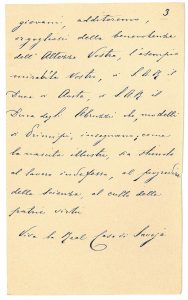 3
giovani, additeremo,
orgogliosi della benevolenza
dell'Altezza Vostra, l'esempio
mirabile Vostro, di S.A.R. il
Duca di Aosta, di S.A.R. il
Duca degli Abruzzi che, modelli
di Principi, insegnarono, come
la nascita illustre, sia stimolo
al lavoro indefesso, al progredire
della scienza, al culto delle
patrie virtù
Viva la Real Casa di Savoja